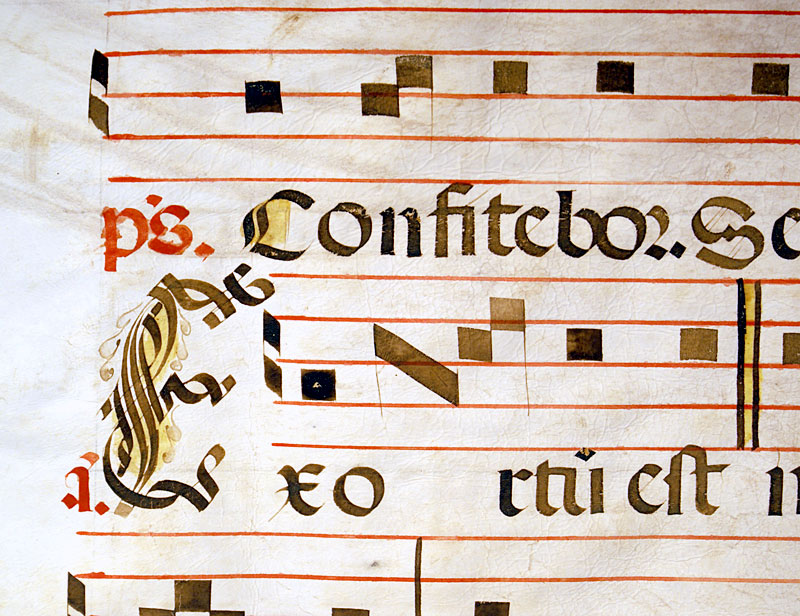 p's. Confitebor. Sc
ā. Exortū est